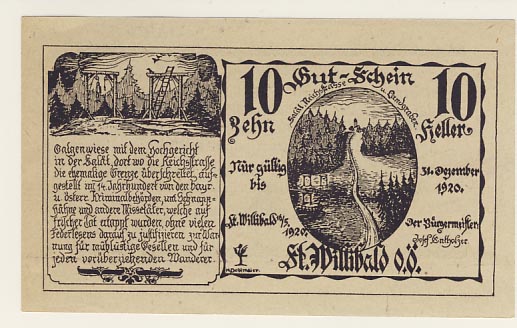 Galgenwiese mit dem Hochgericht
in der Sallat, dort wo die Reichsstraße
die ehemalige Grenze überschreitet, auf-
gestellt im 14. Jahrhundert von den bayr.
u. österr. Kriminalbehörden, um Schnapp-
hähne und andere Missetäter, welche auf
frischer Tat ertappt wurden, ohne vielen
Federlesens daraus zu justifizieren, zur War-
nung für rauflustige Gesellen und für
jeden vorüberziehenden Wanderer.
Gut-Schein
10
10
Zehn
Heller
Sallat Reichsstrasse u. Landgraben
Nur gültig
bis
31. Dezember
1920.
St. Willibald
1920.
Der Bürgermeister:
Josef
St. Willibald O.Ö.